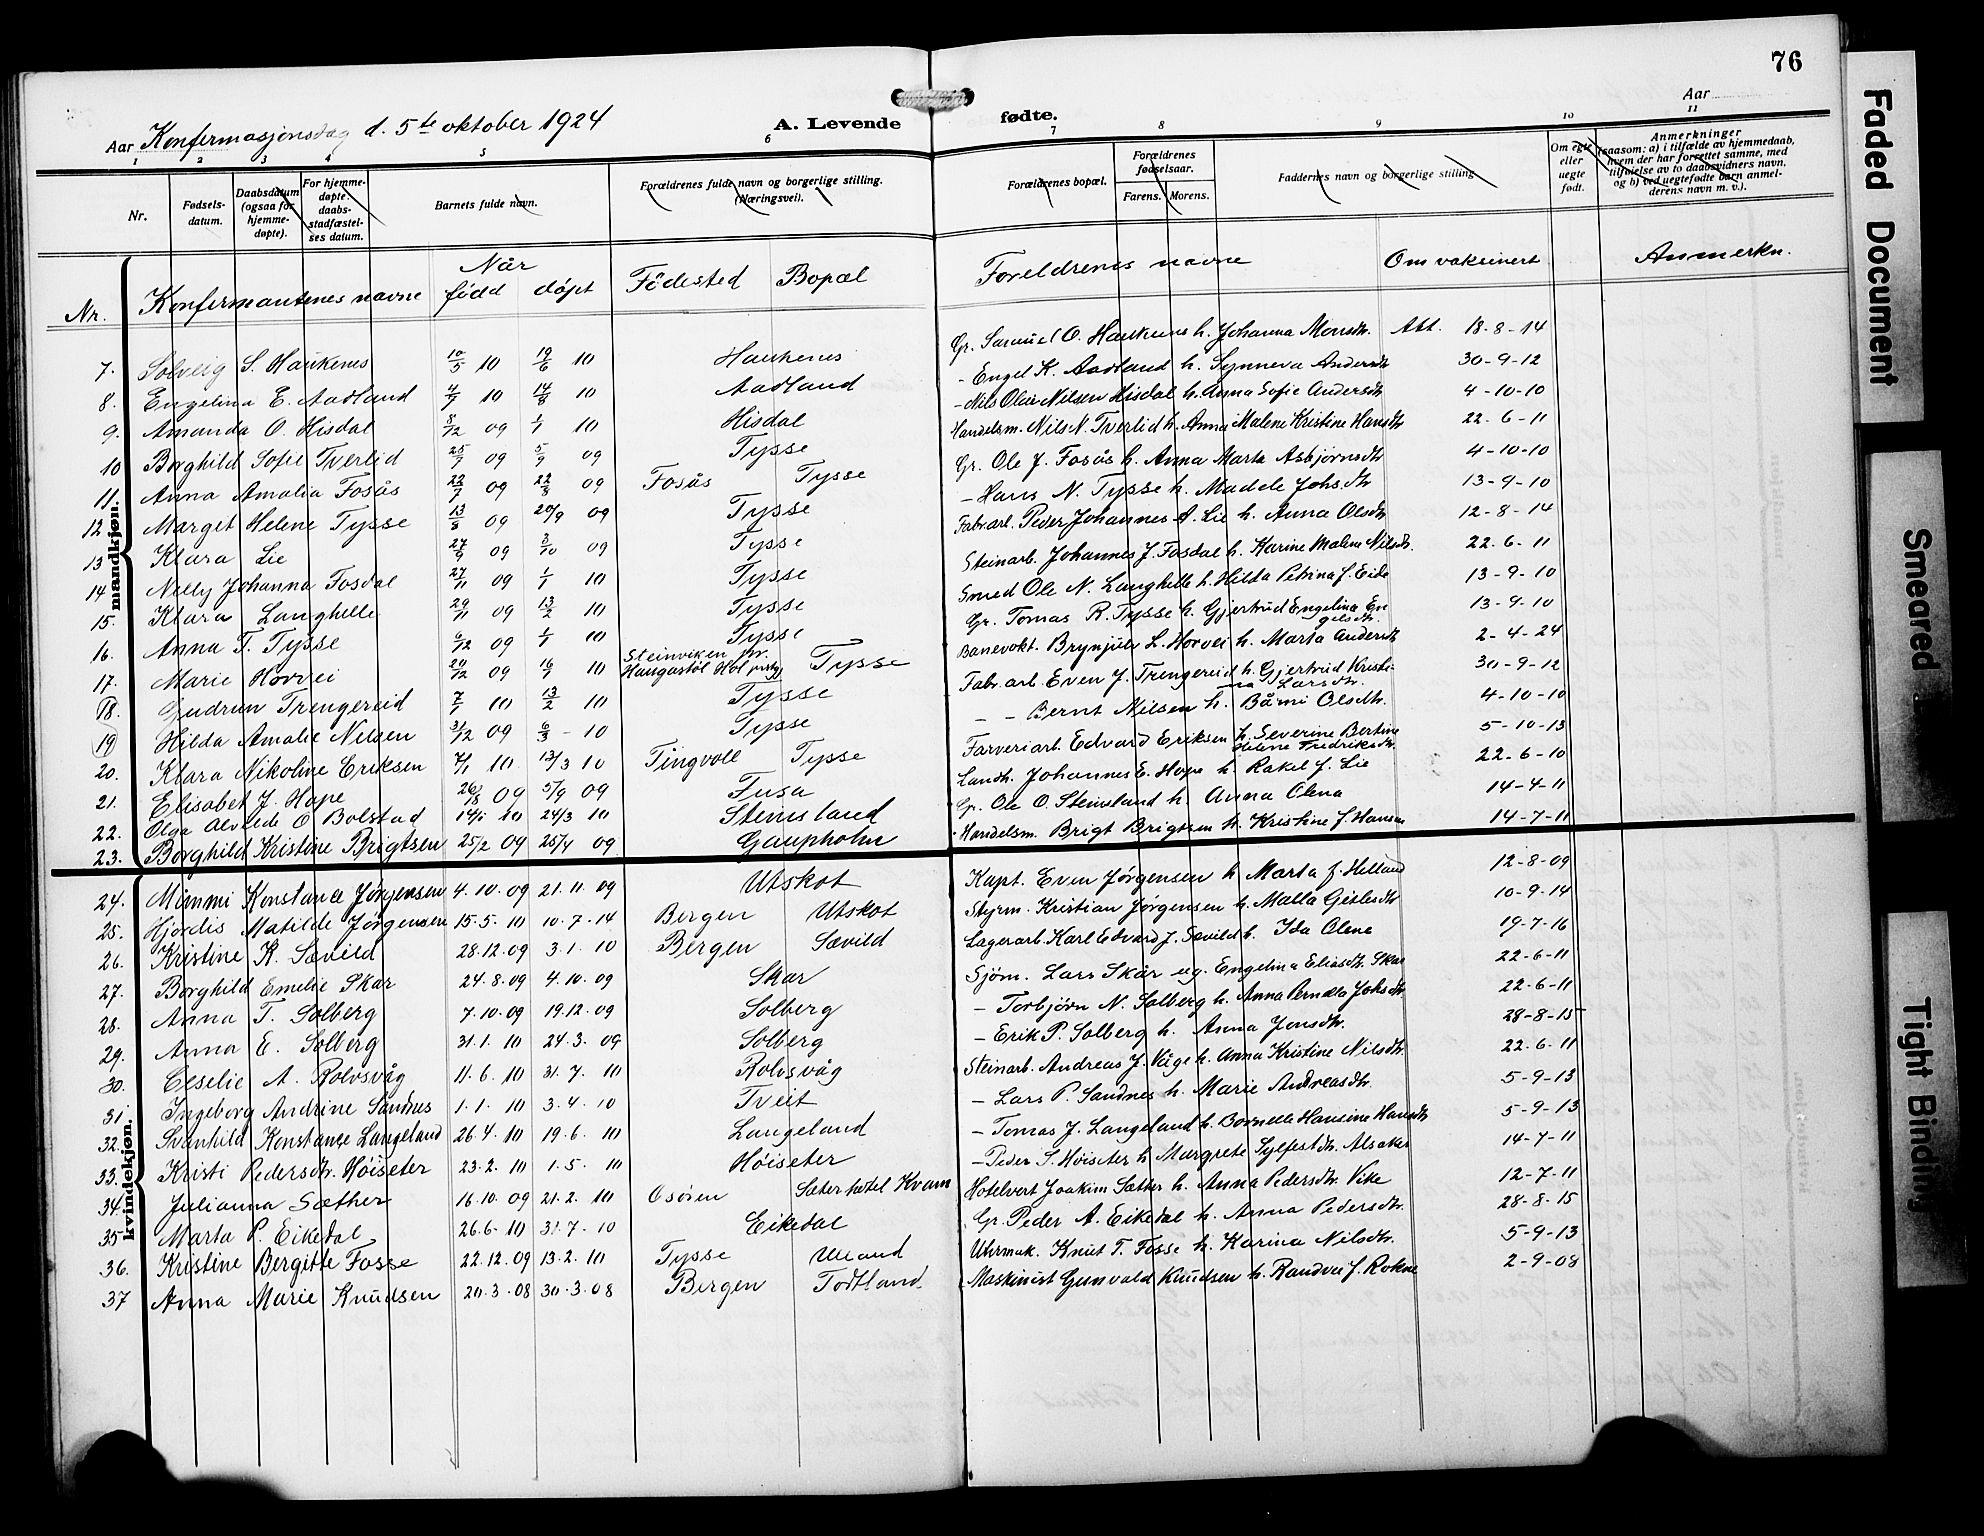 76
Aar Konfermasjonsdag d. 5te oktober 1924 A. Levende fødte. Aar
1 2 3 4 5 6 7 8 9 10 11
Nr. Fødsels-datum. Daabsdatum (ogsaa for hjemme-døpte). For hjemme-døpte: daabs-stadfæstel-ses datum. Barnets fulde navn. Forældrenes fulde navn og borgerlige stilling. (Næringsvei). Forældrenes bopæl. Forældrenes fødselsaar. Farens. Morens. Faddernes navn og borgerlige stilling Om egte eller uegte født. Anmerkninger (saasom: a) i tilfælde av hjemmedaab, hvem der har forrettet samme, med tilføielse av to daabsvidners navn, og b) ved uegtefødte barn anmel-derens navn m. v.).
Nr. Konfermantenes navne Når født døpt Födested Bopæl Foreldrenes navne Om vaksinert Anmerkn.
mandkjøn.
7. Solveig S. Haukenes 10/5 10 19/6 10 Haukenes Gr. Samuel O. Haukenes h. Johanna Monsdtr. Att. 18-8-14
8. Engelina E. Aadland 4/7 10 14/8 10 Aadland - Engel K. Aadland h. Synneva Andersdtr 30-9-12
9. Amanda O. Hisdal 8/12 09 1/1 10 Hisdal - Nils Olai Nilsen Hisdal h. Anna Sofie Andersdtr 4-10-10
10 Borghild Sofie Tverlid 25/7 09 5/9 09 Tysse Handelsm. Nils N. Tverlid h. Anna Malene Kristine Hansdtr 22-6-11
11. Anna Amalia Fosås 22/7 09 22/8 09 Fosås Tysse Gr. Ole J. Fosås h. Anna Marta Asbjørnsdtr 4-10-10
12 Marget Helene Tysse 13/8 09 20/9 09 Tysse - Hans N. Tysse h. Madele Johs.dtr 13-9-10
13 Klara Lie 27/9 09 3/10 09 Tysse Fabr.arb. Peder Johannes A. Lie h. Anna Olsdtr 12-8-14
14 Nelly Johanna Fosdal 27/11 09 1/1 10 Tysse Steinarb. Johannes J. Fosdal h. Karine Malene Nilsdtr. 22.6-11
15. Klara Langhelle 29/11 09 13/2 10 Tysse Smed Ole N. Langhelle h. Hilda Petrina f. Eide 13-9-10
16. Anna T. Tysse 6/12 09 1/1 10 Tysse Gr. Tomas R. Tysse h. Gjertrud Engelina Engelsdtr. 13-9-10
17. Marie Horvei 20/12 09 16/1 10 Steinviken pr. Haugastøl Hol prstgj Tysse Banevokt. Brynjulv L. Horvei h. Marta Andersdtr 2-4-24
18. Gudrun Trengereid 7/1 10 13/2 10 Tysse Fabr.arb Even J. Trengereid h. Gjertrud Kristina Larsdtr. 30-9-12
19 Hilda Amalie Nilsen 31/12 09 6/3 - 10 Tysse - - Bernt Nilsen h. Bårni Olsdtr. 4-10-10
20. Klara Nikoline Eriksen 7/1 10 13/3 10 Tingvoll Tysse Farveriarb. Edvard Eriksen h. Severine Bertine Helene Fredriksdtr. 5-10-13
21. Elisabet J. Hope 26/8 09 5/9 09 Fusa Landh. Johannes E. Hope h. Rakel f. Lie 22-6-10
22. Olga Alvilde O Bolstad 14/1 10 24/3 10 Steinsland Gr. Ole O. Steinsland h. Anna Olena 14-4-11
23. Borghild Kristine Brigtsen 25/2 09 25/4 09 Gaupholm Handelsm. Brigt Brigtsen h. Kristine f. Hansen 14-7-11
kvindekjøn.
24. Mimmi Konstance Jørgensen 4.10.09 21.11.09 Utskot Kapt. Even Jørgensen h. Marta f. Helland 12-8-09
25. Hjördis Matilde Jørgensen 15.5.10 10.7.14 Bergen Utskot Styrm. Kristian Jørgensen h. Malla Gislesdtr 10-9-14
26. Kristine K. Sævild 28.12.09 3.1.10 Bergen Sævild Lagerarb. Karl Edvard J. Sævild h. Ida Olene 19-7-16
27. Borghild Emelie Skar 24.8.09 4.10.09 Skar Sjöm. Lars Skår ug. Engelina Eliasdtr. Skar 22-6-11
28. Anna T. Solberg 7.10.09 19.12.09 Solberg - Torbjörn N. Solberg h. Anna Pernella Johsdtr 22-6-11
29. Anna E. Solberg 31.1.10 24.3.09 Solberg - Erik P. Solberg h. Anna Jonsdtr. 28-8-15
30. Ceselie A. Rolvsvåg 11.6.10 31.7.10 Rolvsvåg Steinarb. Andreas J. Våge h. Anna Kristine Nilsdtr. 22.6-11
31. Ingeborg Andrine Sandnes 1.1.10 3.4.10 Tveit - Lars P. Sandnes h. Marie Andreasdtr. 5-9-13
32. Svanhild Konstance Langeland 26.4.10 19.6.10 Langeland - Tomas J. Langeland h. Bornella Hansine Hansdtr 5-9-13
33. Kristi Pedersdtr. Høiseter 23.2.10 1.5.10 Høiseter - Peder S. Høiseter h Margrete Sylfestdtr. Alsaker 14-7-11
34. Julianna Sæther 16.10.09 21.2.10 Osören Sæterhotel Kvam Hotelvert Joakim Sætter h. Anna Pedersdtr. Vike 12-7-11
35 Marta P. Eikedal 26.6.10 31.7.10 Eikedal Gr. Peder A. Eikedal h. Anna Pedersdtr. 28-8-15
36. Kristine Bergitte Fosse 22.12.09 13.2.10 Tysse Uland Uhrmak. Knut T. Fosse h. Karina Nilsdtr. 5-9-13
37 Anna Marie Knudsen 20.3.08 30.3.08 Bergen Todtland Maskinist Gunvald Knudsen h. Randvei f. Rokne 2-9-08
Faded Document
Smeared
Tight Binding